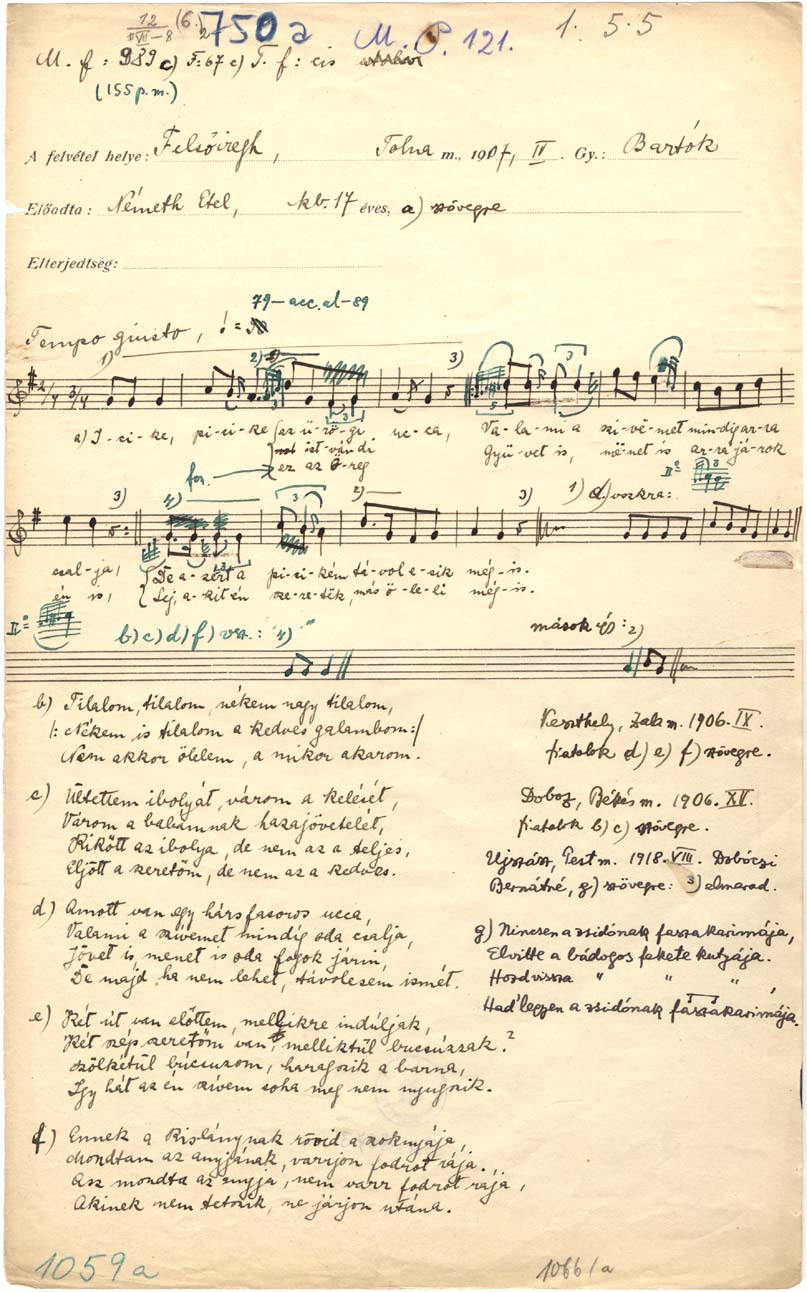 12 (6.)
VII-8
750a M. P. 121. 1. 5. 5
M. f: 989 c) F: 67 c) T. f: cis
(155 p.m.)
A felvétel helye: Felsőiregh, Tolna m., 1907, IV. Gy.: Bartók
Előadta: Németh Etel, kb. 17 éves, a) szövegre
Elterjedtség:
79-acc. al-89
Tempo giusto,
1) 2) 3)
2/4 3/4
a) I-ci-ke, pi-ci-ke az ü-rö-gi uc-ca, Va-la-mi a szi-vë-met min-dig ar-ra
ist-ván-di Gyü-vet is, më-net is ar-ra já-rok
ez az Ö-reg
for. II°
3) 4) 3 2) 3) 1) d) voszkra:
csal-ja, De a-zért a pi-ci-kém tá-vol e-sik még-is.
én is, Lej, a-kit én sze-re-tëk, más ö-le-li még-is.
II° b) c) d) f) vsz.: 4) mások is: 2)
b) Tilalom, tilalom, nékem nagy tilalom,
|: Nékem is tilalom a kedves galambom :|
Nem akkor ölelem, a mikor akarom.
Keszthely, Zala m. 1906. IX.
fiatalok d) e) f) szövegre.
c) Ültettem ibolyát, várom a kelését,
Várom a babámnak hazajövetelét,
Kikött az ibolya, de nem az a teljes,
Eljött a szeretőm, de nem az a kedves.
Doboz, Békés m. 1906. XII.
fiatalok b) c) szövegre.
Ujszász, Pest m. 1918. VIII. Dobóczi
Bernátné, g) szövegre: 3) elmarad.
d) Amott van egy hársfasoros ucca,
Valami a szívemet mindíg oda csalja,
Jövet is, menet is oda fogok járni,
De majd ha nem lehet, távolesem ismét.
g) Nincsen a zsidónak faszakarimája,
Elvitte a bádogos fekete kutyája.
Hozd vissza " " " ,
Had' legyen a zsidónak faszakarimája.
e) Két út van előttem, mellyikre indúljak,
Két szép szeretőm van, melliktűl bucsúzzak?
Szőlkétűl búcsuzom, haragszik a barna,
Igy hát az én szívem soha meg nem nyugszik.
f) Ennek a kislánynak rövid a szoknyája,
Mondtam az anyjának, varrjon fodrot rája.,
Asz mondta az anyja, nem varr fodrot rája,
Akinek nem tetszik, ne járjon utána.
1059a 1066/a